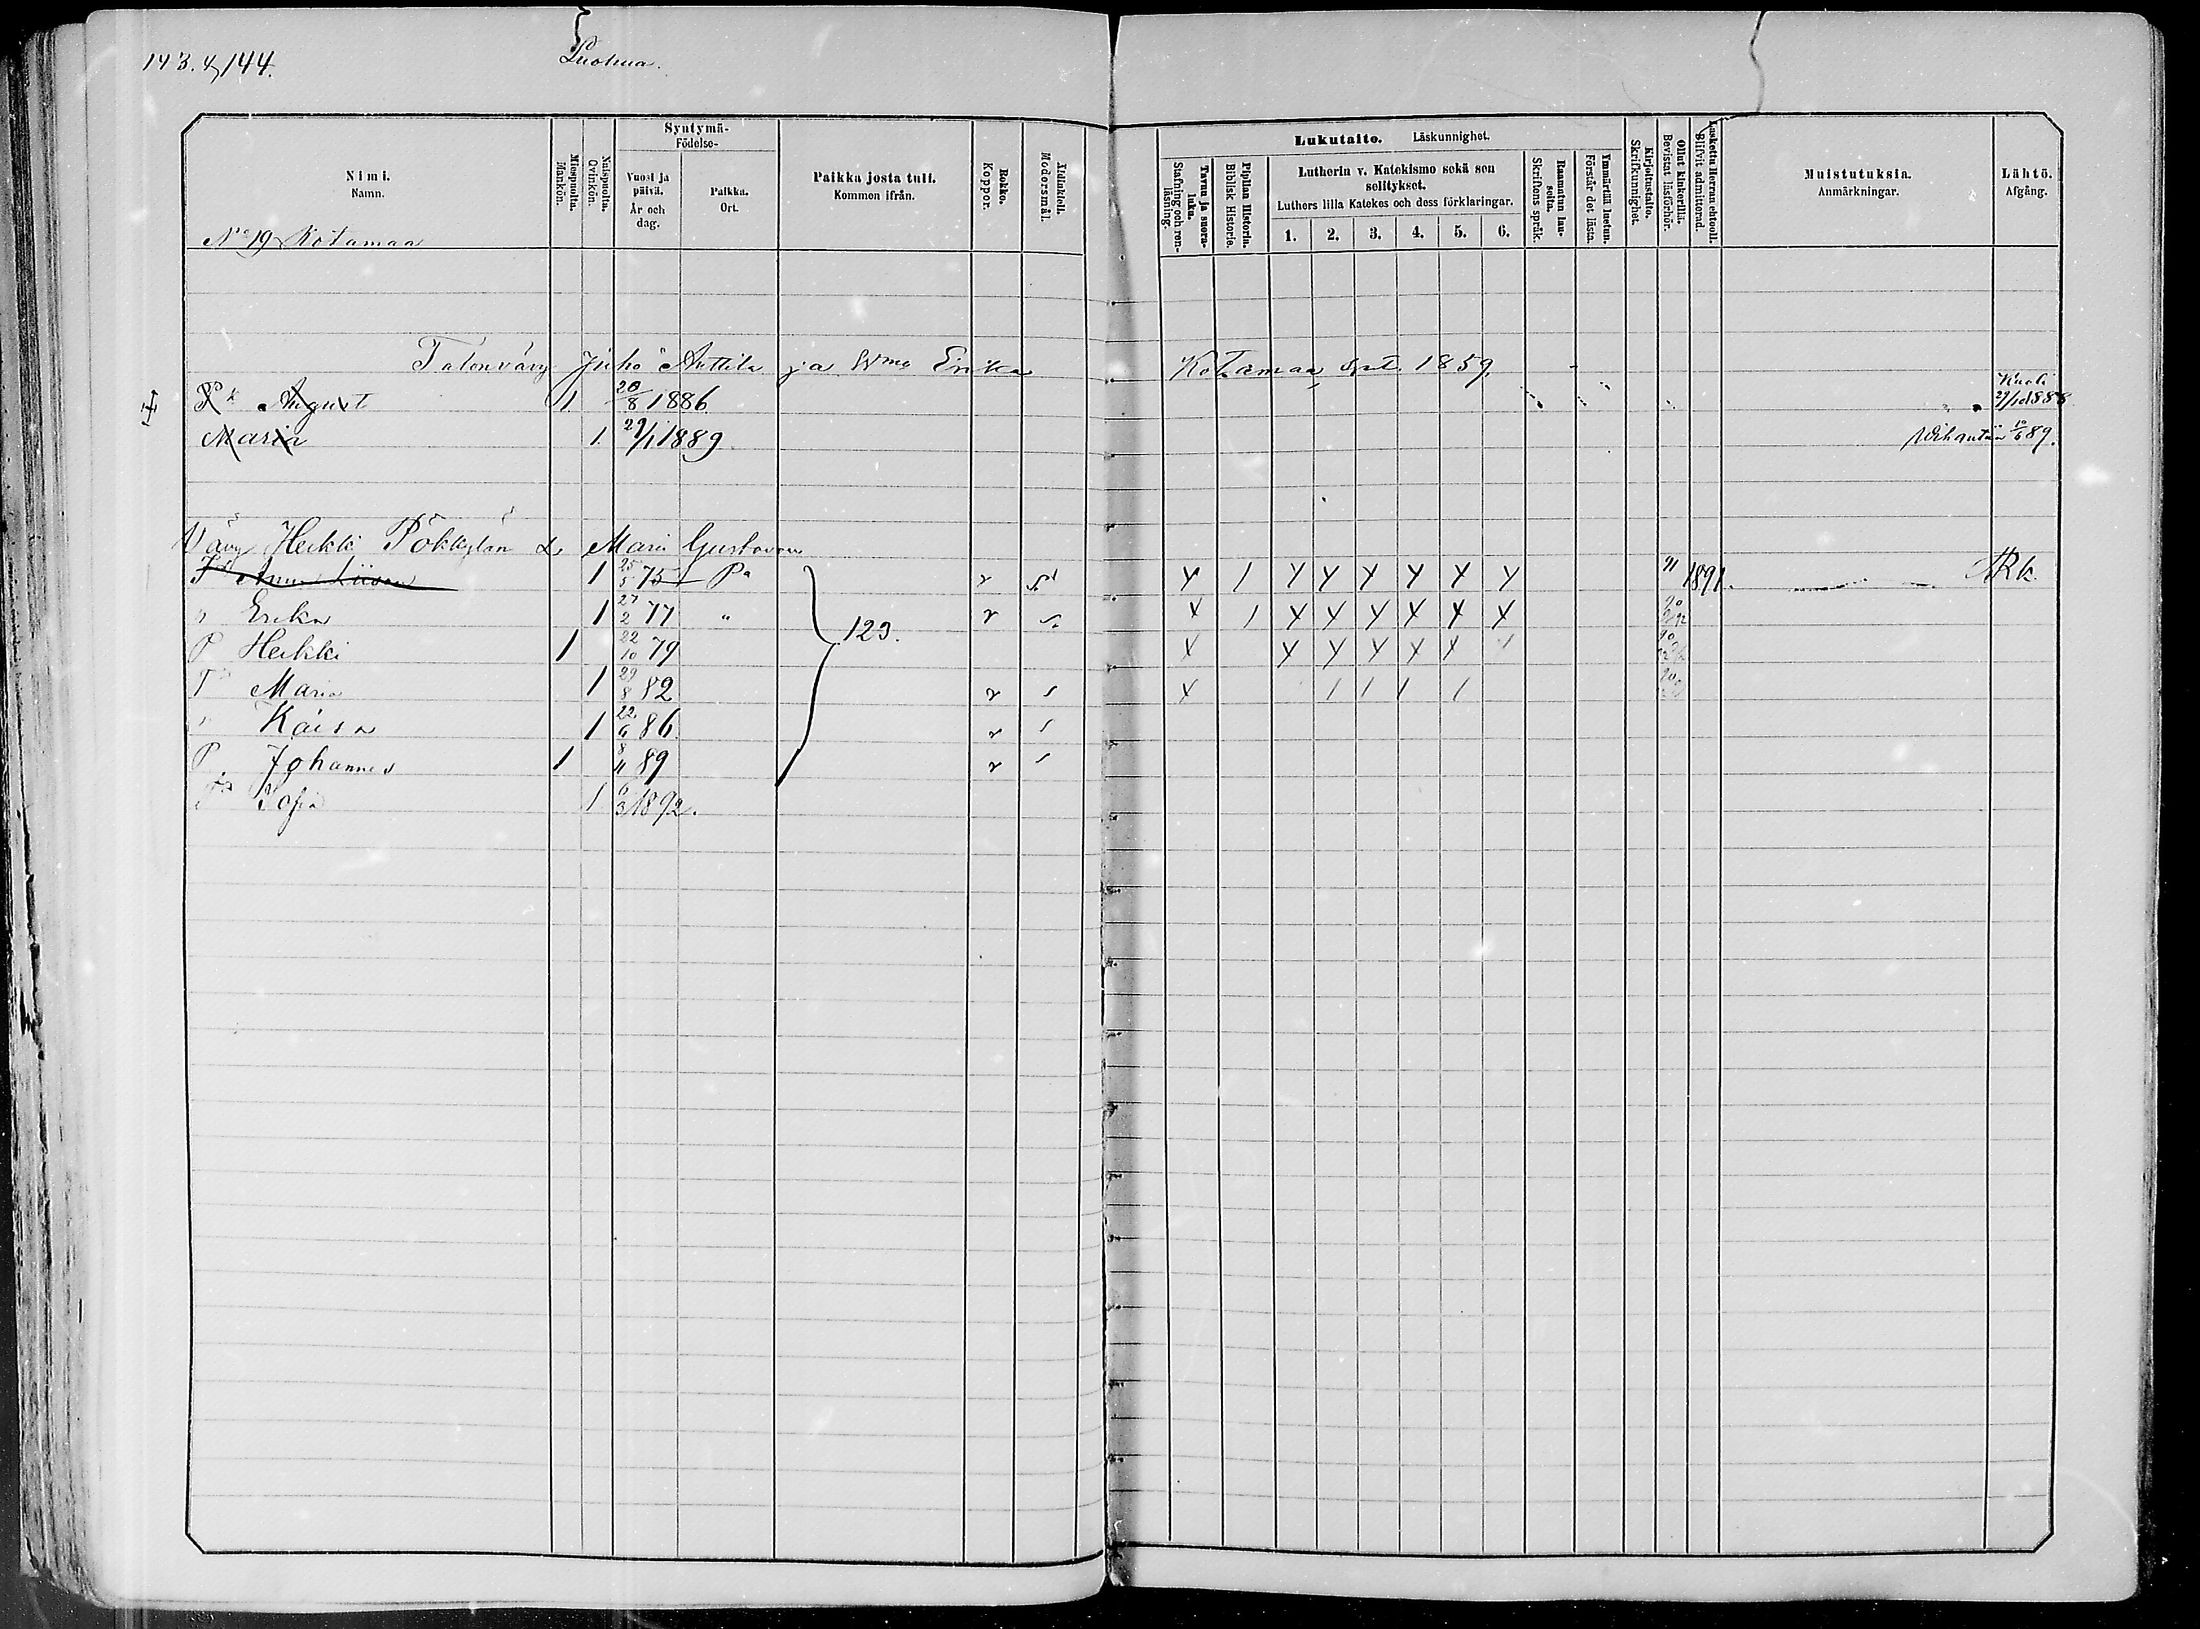 143. & 144.
Luohua.
Nimi.
Namn.
Miespuolta.
Mankön.
Naispuolta.
Qvinkön.
Syntymä-
Födelse-
Vuosi ja päivä.
År och dag.
Paikka.
Ort.
Paikka josta tuli.
Kommen ifrån.
Rokko.
Koppor.
Äidinkieli.
Modersmål.
Lukutaito. Läskunnighet.
Tavuu ja suora-luku.
Stafning och ren-läsning.
Piplian Historia.
Biblisk Historie.
Lutherin v. Katekismo sekä sen selitykset.
Luthers lilla Katekes och dess förklaringar.
1. 2. 3. 4. 5. 6.
Raamatun lau-seita.
Skriftens språk.
Ymmärtää luetun.
Förstår det lästa.
Kirjoitustaito.
Skrifkunnighet.
Ollut kinkerillä.
Bevistat läsförhör.
Laskettu Herran ehtooll.
Blifvit admitterad.
Muistutuksia.
Anmärkningar.
Lähtö.
Afgång.
No 19 Kotamaa
Talonvävy Juho Anttila ja Wmo Erika Kotamaa synt. 1859.
Pk August 1 20/8 1886 Kuoli 27/10 1888
Maria 1. 29/1 1889. Wihantiin 10/6 89.
Vävy Heikki Pökkylän L. Maria Gustavan
T Anna Liisa 1 25/5 75 Pa r s Y 1 Y Y Y Y Y Y 91 1891. RK.
" Erika 1 27/2 77 " 123. r s X 1 X X X X X X 90
P Heikki 1 22/10 79 X Y Y Y X X 1 90
T Maria 1 29/8 82 r s X 1 1 1 1 90
" Kaisa 1 22/6 86. r s
P Johannes 1 8/11 89 r s
Sofia 1 6/3 1892.